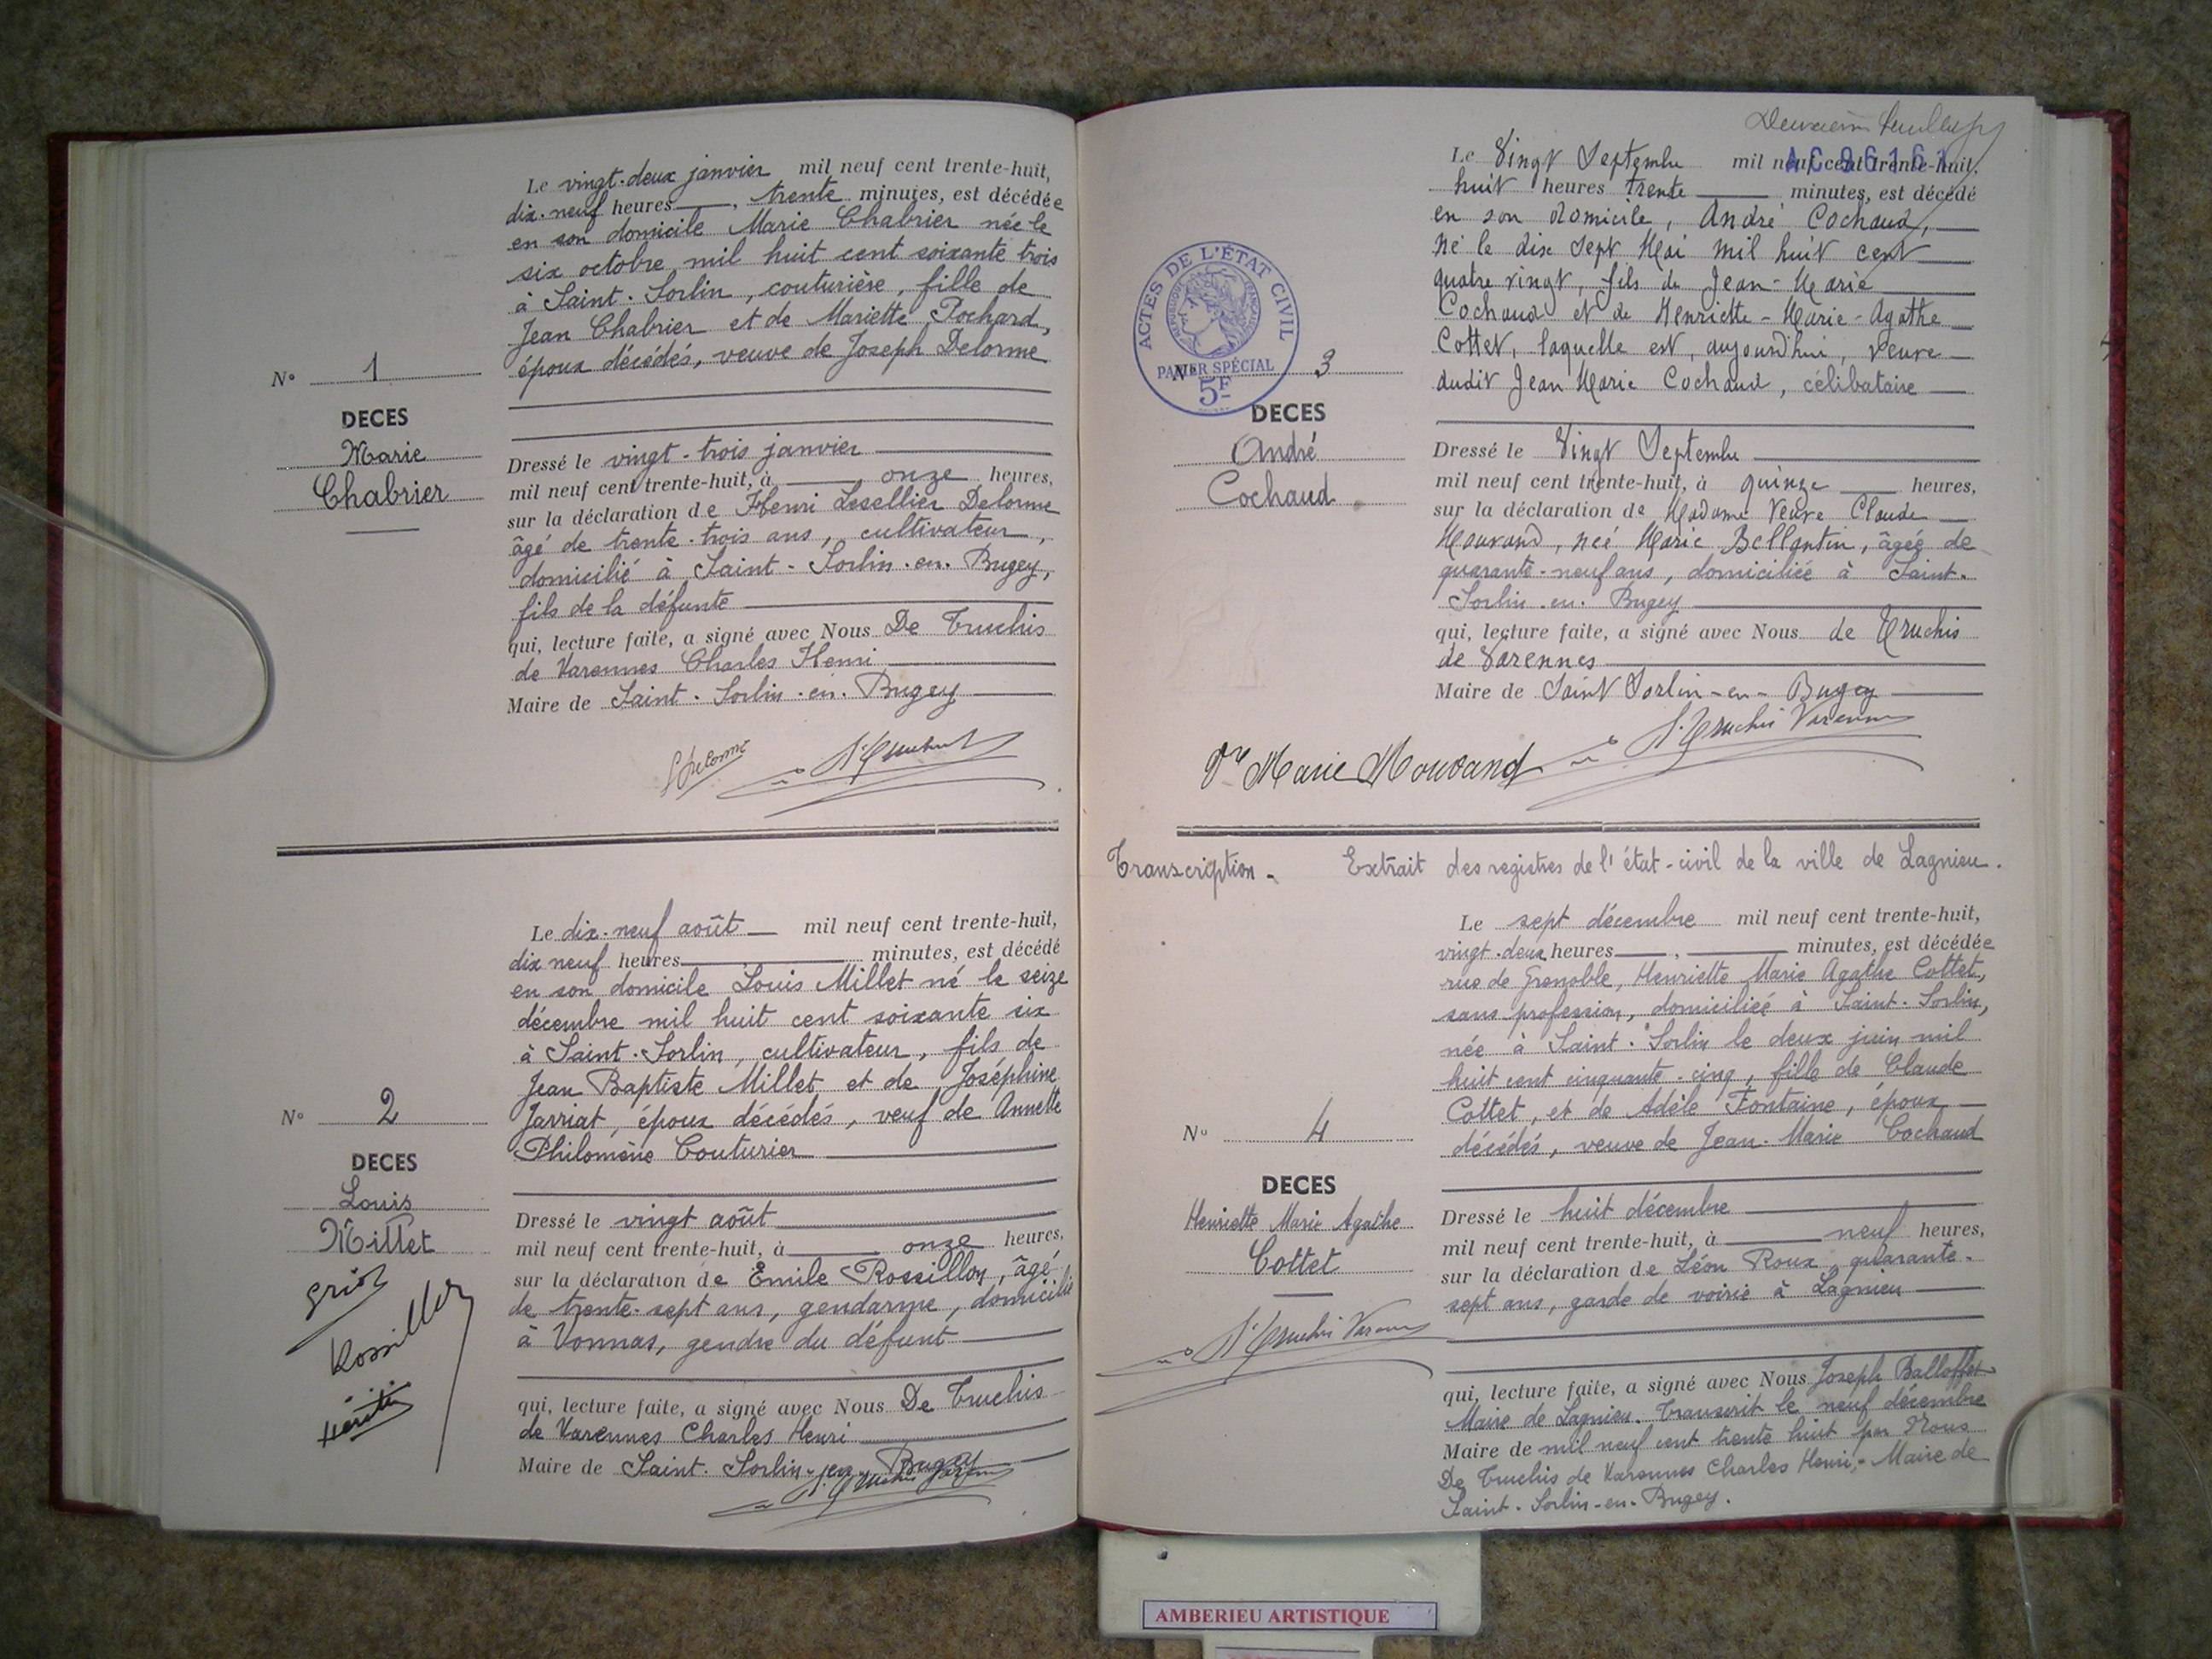 Le vingt-deux janvier mil neuf cent trente-huit,
dix-neuf heures, trente minutes, est décédée
en son domicile Marie Chabrier née le
six octobre mil huit cent soixante trois
à Saint-Sorlin, couturière, fille de
Jean Chabrier et de Mariette Pochard,
époux décédés, veuve de Joseph Delorme
N° 1
DECES
Marie
Chabrier
Dressé le vingt-trois janvier
mil neuf cent trente-huit, à onze heures,
sur la déclaration de Henri Lesellier Delorme
âgé de trente-trois ans, cultivateur,
domicilié à Saint-Sorlin-en-Bugey,
fils de la défunte
qui, lecture faite, a signé avec Nous De Truchis
de Varennes Charles Henri
Maire de Saint-Sorlin-en-Bugey
Delorme
Le dix-neuf août mil neuf cent trente-huit,
dix neuf heures minutes, est décédé
en son domicile Louis Millet né le seize
décembre mil huit cent soixante six
à Saint-Sorlin, cultivateur, fils de
Jean Baptiste Millet et de Joséphine
Jarriat, époux décédés, veuf de Annette
Philomène Couturier
N° 2
DECES
Louis
Millet
Dressé le vingt août
mil neuf cent trente-huit, à onze heures,
sur la déclaration de Emile Rossillon, âgé
de trente-sept ans, gendarme, domicilié
à Vonnas, gendre du défunt
qui, lecture faite, a signé avec Nous De Truchis
de Varennes Charles Henri
Maire de Saint-Sorlin-en-Bugey
Le Vingt Septembre mil neuf cent trente-huit,
huit heures trente minutes, est décédé
en son domicile, André Cochaud,
né le dix sept Mai mil huit cent
quatre vingt, fils de Jean-Marie
Cochaud et de Henriette-Marie-Agathe
Cottet, laquelle est, aujourd'hui, veuve
dudit Jean Marie Cochaud, célibataire
ACTES DE L'ÉTAT CIVIL
PAPIER SPÉCIAL
5F
N° 3
DECES
André
Cochaud
Dressé le Vingt Septembre
mil neuf cent trente-huit, à quinze heures,
sur la déclaration de Madame Veuve Claude
Mouvand, née Marie Bellantin, âgée de
quarante-neuf ans, domiciliée à Saint-
Sorlin-en-Bugey
qui, lecture faite, a signé avec Nous de Truchis
de Varennes
Maire de Saint Sorlin-en-Bugey
Vve Marie Mouvand
Transcription - Extrait des registres de l'état-civil de la ville de Lagnieu.
Le sept décembre mil neuf cent trente-huit,
vingt-deux heures, minutes, est décédée
rue de Grenoble, Henriette Marie Agathe Cottet,
sans profession, domiciliée à Saint-Sorlin,
née à Saint-Sorlin le deux juin mil
huit cent cinquante-cinq, fille de Claude
Cottet, et de Adèle Fontaine, époux
décédés, veuve de Jean-Marie Cochaud
N° 4
DECES
Henriette Marie Agathe
Cottet
Dressé le huit décembre
mil neuf cent trente-huit, à neuf heures,
sur la déclaration de Léon Roux, quarante-
sept ans, garde de voirie à Lagnieu
qui, lecture faite, a signé avec Nous Joseph Balloffet
Maire de Lagnieu. Transcrit le neuf décembre
Maire de mil neuf cent trente huit par Nous
De Truchis de Varennes Charles Henri,- Maire de
Saint-Sorlin-en-Bugey.
AMBERIEU ARTISTIQUE